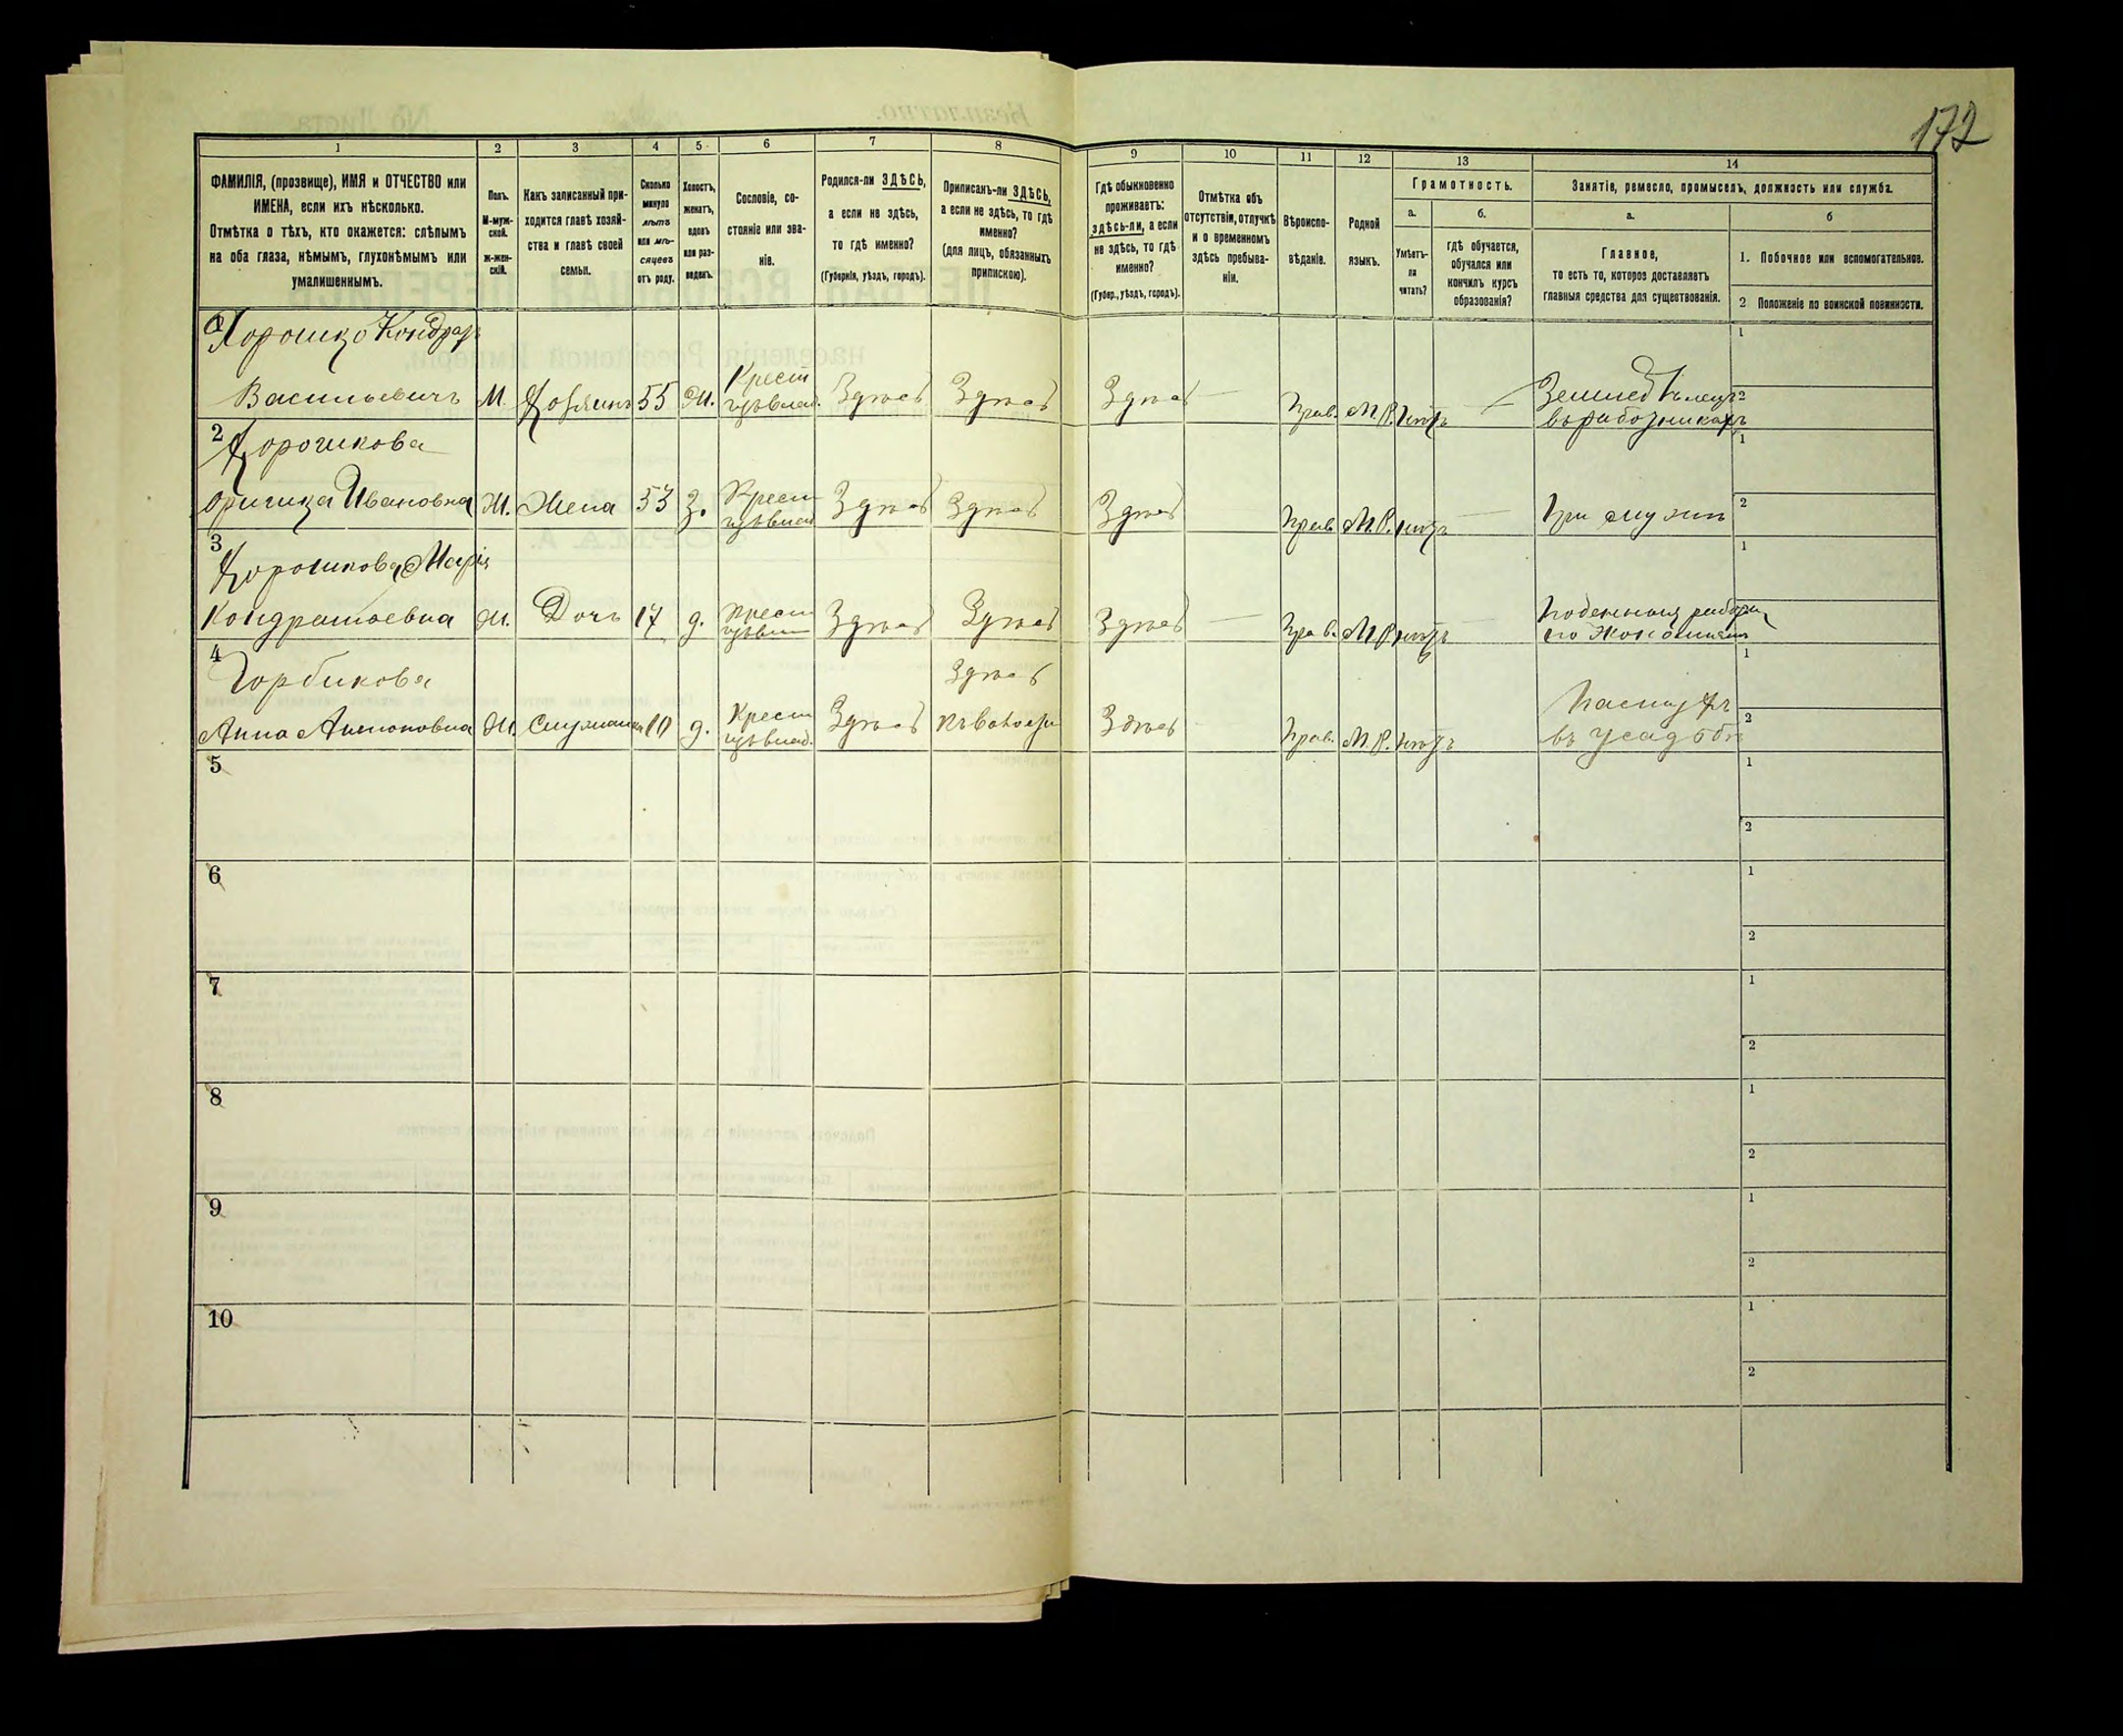 172
1 2 3 4 5 6 7 8 9 10 11 12 13 14
ФАМИЛІЯ, (прозвище), ИМЯ и ОТЧЕСТВО или
ИМЕНА, если ихъ нѣсколько.
Отмѣтка о тѣхъ, кто окажется: слѣпымъ
на оба глаза, нѣмымъ, глухонѣмымъ или
умалишеннымъ.
Полъ.
М-муж-
ской.
ж-жен-
скій.
Какъ записанный при-
ходится главѣ хозяй-
ства и главѣ своей
семьи.
Сколько
минуло
лѣтъ
или мѣ-
сяцевъ
отъ роду.
Холостъ,
женатъ,
вдовъ
или раз-
веденъ.
Сословіе, со-
стояніе или зва-
ніе.
Родился-ли ЗДѢСЬ,
а если не здѣсь,
то гдѣ именно?
(Губернія, уѣздъ, городъ).
Приписанъ-ли ЗДѢСЬ,
а если не здѣсь, то гдѣ
именно?
(для лицъ, обязанныхъ
припискою).
Гдѣ обыкновенно
проживаетъ:
здѣсь-ли, а если
не здѣсь, то гдѣ
именно?
(Губер., уѣздъ, городъ).
Отмѣтка объ
отсутствіи, отлучкѣ
и о временномъ
здѣсь пребыва-
ніи.
Вѣроиспо-
вѣданіе.
Родной
языкъ.
Грамотность.
а.
Умѣетъ-
ли
читать?
б.
гдѣ обучается,
обучался или
кончилъ курсъ
образованія?
Занятіе, ремесло, промыселъ, должность или служба.
а.
Главное,
то есть то, которое доставляетъ
главныя средства для существованія.
б
1. Побочное или вспомогательное.
2 Положеніе по воинской повинности.
Хорошко Кондрат
Васильевичъ М. Хозяинъ 55 Ж. Крест Здѣсь Здѣсь Здѣсь — Прав. М.Р. нѣтъ — Земледѣлецъ
въ работникахъ
2 Хорошкова
Ивановна Ж. Жена 53 З. Крест Здѣсь Здѣсь Здѣсь Прав. М.Р. нѣтъ — При мужѣ
3 Хорошкова Марія
Кондратьевна Ж. Дочь 17 д. Крест Здѣсь Здѣсь Здѣсь — Прав. М.Р. нѣтъ Поденныя
4 Горбикова Здѣсь
Анна Антоновна Ж. 10 д. Крест Здѣсь Здѣсь Прав. М.Р. нѣтъ Пастухъ
въ усадьбѣ
5
6
7
8
9
10